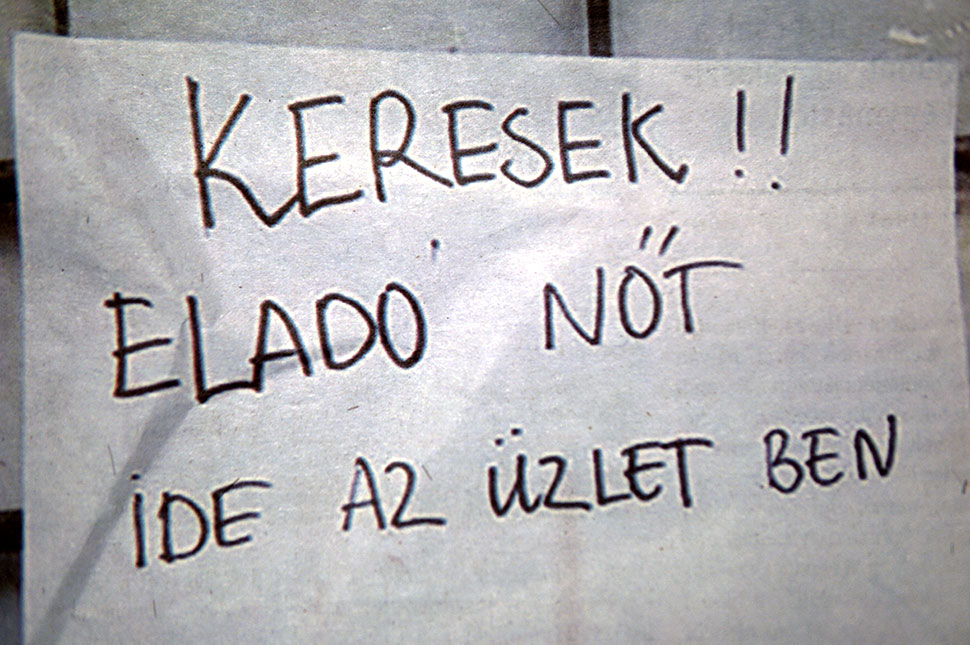 KERESEK!!
ELADÓ NŐT
IDE AZ ÜZLET BEN